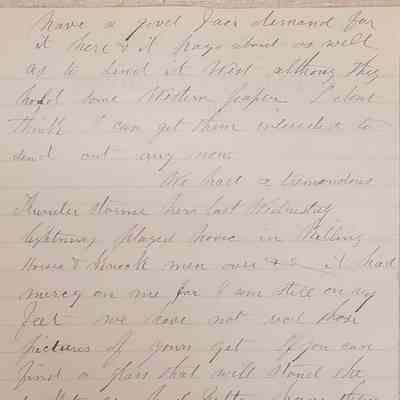 have a good Jack demand for
it here & it pays about as well
as to send it West althoug they
hold some Western paper I dont
think I can get them interested to
send out any now
We had a tremendous
Thunder storme here last Wednesday
lightning played havic in Milling
Houses & struck men over & it had
mercy on me for I am still on my
feet we have not red those
pictures of yours yet If you can
find a glass that will stand the